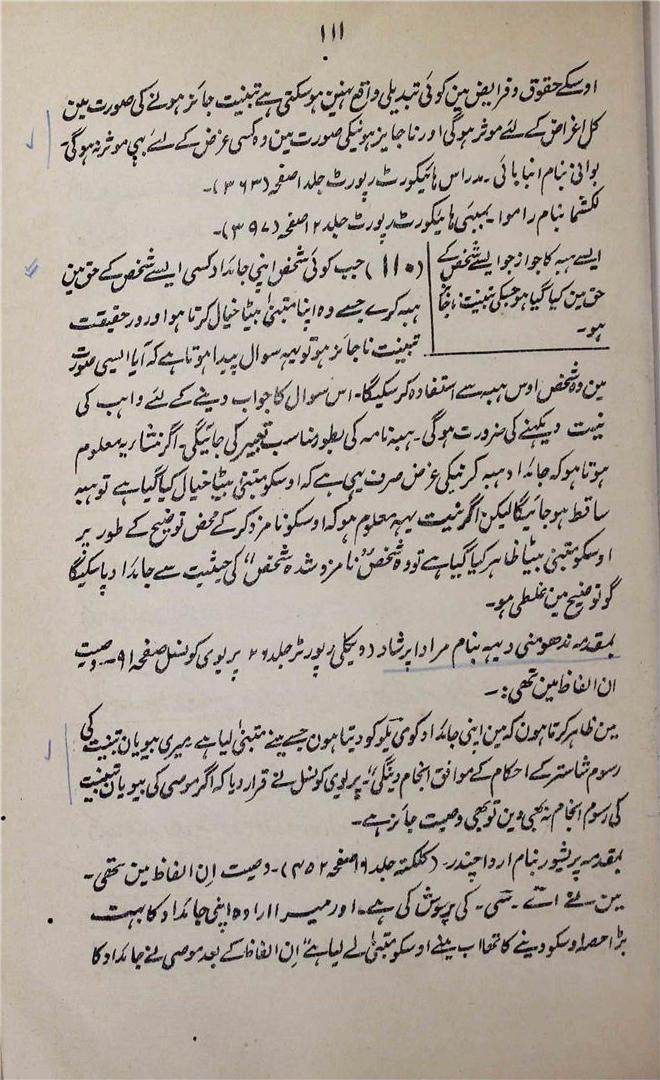 ۱۱۱
اوسکے حقوق و فرایض مین کوئی تبدیلی واقع نہین ہوسکتی ہے تبنیت جائز ہونے کی صورت مین
کل اغراض کے لئے موثر ہوگی اور ناجایز ہونیکی صورت مین وہ کسی غرض کے لئے بہی موثر نہ ہوگی۔
بوانی بنام انبابائی۔ مدراس ہائیکورٹ رپورٹ جلد ۱ صفحہ (۳۶۳)۔
لکشما بنام راموا۔ بمبئی ہائیکورٹ رپورٹ جلد ۲ صفحہ (۳۹۷)۔
ایسے ہبہ کا جواز جو ایسے شخص کے
حق مین کیا گیا ہو جسکی تبنیت ناجائز
ہو۔
(۱۱۰) جب کوئی شخص اپنی جائداد کسی ایسے شخص کے حق مین
ہبہ کرے جسے وہ اپنا متبنیٰ بیٹا خیال کرتا ہو اور در حقیقت
تبنیت ناجائز ہو تو یہہ سوال پیدا ہوتا ہے کہ آیا ایسی صورت
مین وہ شخص اوس ہبہ سے استفادہ کرسکیگا۔ اس سوال کا جواب دینے کے لئے واہب کی
نیت دیکہنے کی ضرورت ہوگی۔ ہبہ نامہ کی بطور مناسب تعبیر کی جائیگی۔ اگر منشا یہ معلوم
ہوتا ہو کہ جائداد ہبہ کرنیکی غرض صرف یہی ہے کہ اوسکو متبنیٰ بیٹا خیال کیا گیا ہے تو ہبہ
ساقط ہوجائیگا لیکن اگر نیت یہہ معلوم ہو کہ اوسکو نامزد کرکے محض توضیح کے طور پر
اوسکو متبنیٰ بیٹا ظاہر کیا گیا ہے تو وہ شخص ”نامزد شدہ شخص“ کی حیثیت سے جائداد پاسکیگا
گو توضیح مین غلطی ہو۔
بمقدمہ ندھومنی دیبہ بنام سرادا پرشاد (ویکلی رپورٹر جلد ۲۶ پریوی کونسل صفحہ ۹۱۔ وصیت
ان الفاظ مین تھی:۔
مین ظاہر کرتا ہون کہ مین اپنی جائداد کوی پلو کو دیتا ہون جسے مینے متبنیٰ لیا ہے میری بیویان تبنیت کی
رسوم شاستر کے احکام کے موافق انجام دینگی“۔ پریوی کونسل نے قرار دیا کہ اگر موصی کی بیویان تبنیت
کی رسوم انجام نہ بھی دین تو بھی وصیت جائز ہے۔
بمقدمہ پریشور بنام اردا چندر۔ (کلکتہ جلد ۶ صفحہ ۴۵۲)۔ وصیت اِن الفاظ مین تھی۔
مین نے اے۔ سی۔ کی پرورش کی ہے۔ اور میرا ارادہ اپنی جائداد کا بہت
بڑا حصہ اوسکو دینے کا تھا اب مینے اوسکو متبنیٰ لے لیا ہے“ اِن الفاظ کے بعد موصی نے جائداد کا